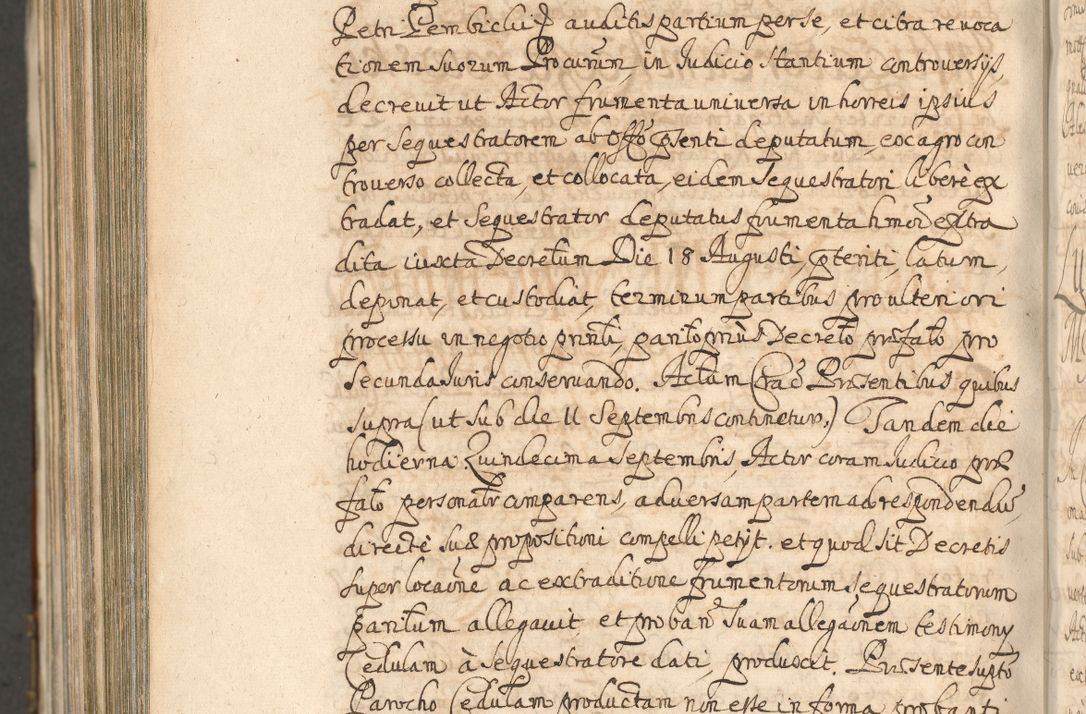 Petri Pembicluij auditis partium per se, et citra revoca
tionem suorum Procurum, in Judicio stantium controversijs,
decrevit ut Actor frumenta universa in horreis ipsius
per Sequestratorem ab Offo pnti deputatum, eoc agro con
troverso collecta, et collocata, eidem Sequestratori liberè ex
tradat, et Sequestrator deputatus frumenta hmoi extra
dita iuxta Decretum Die 18 Augusti, pteriti, latum,
deponat, et custodiat, terminum partibus pro ulteriori
processu in negotio prinli, parito prius Decreto prefato pro
secunda Juris conservando. Actum Crac Præsentibus quibus
supra (ut sub die 11 Septembris continetur.) Tandem die
hodierna Quindecima Septembris, Actor coram Judicio præ
fato personalr comparens, adversam partem ad respondendu,
directè suæ propositioni compelli petijt. et quod sit Decretis
super locaone ac extraditione frumentorum sequestratorum
paritum allegavit et proban suam allegaonem testimony
Cedulam à Sequestratore dati, produxit. Præsente supto
Parocho Cedulam productam non esse in forma probanti